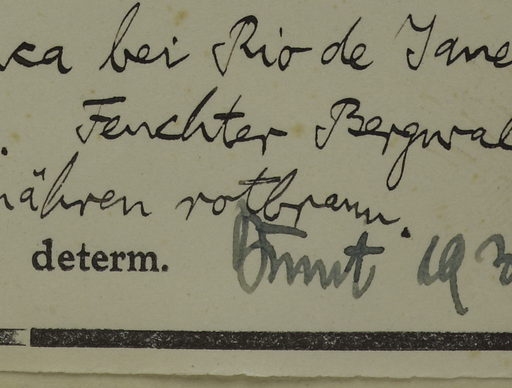 ca bei Rio de Jane
Feuchter Bergwal
ähren rotbraun.
determ. 193